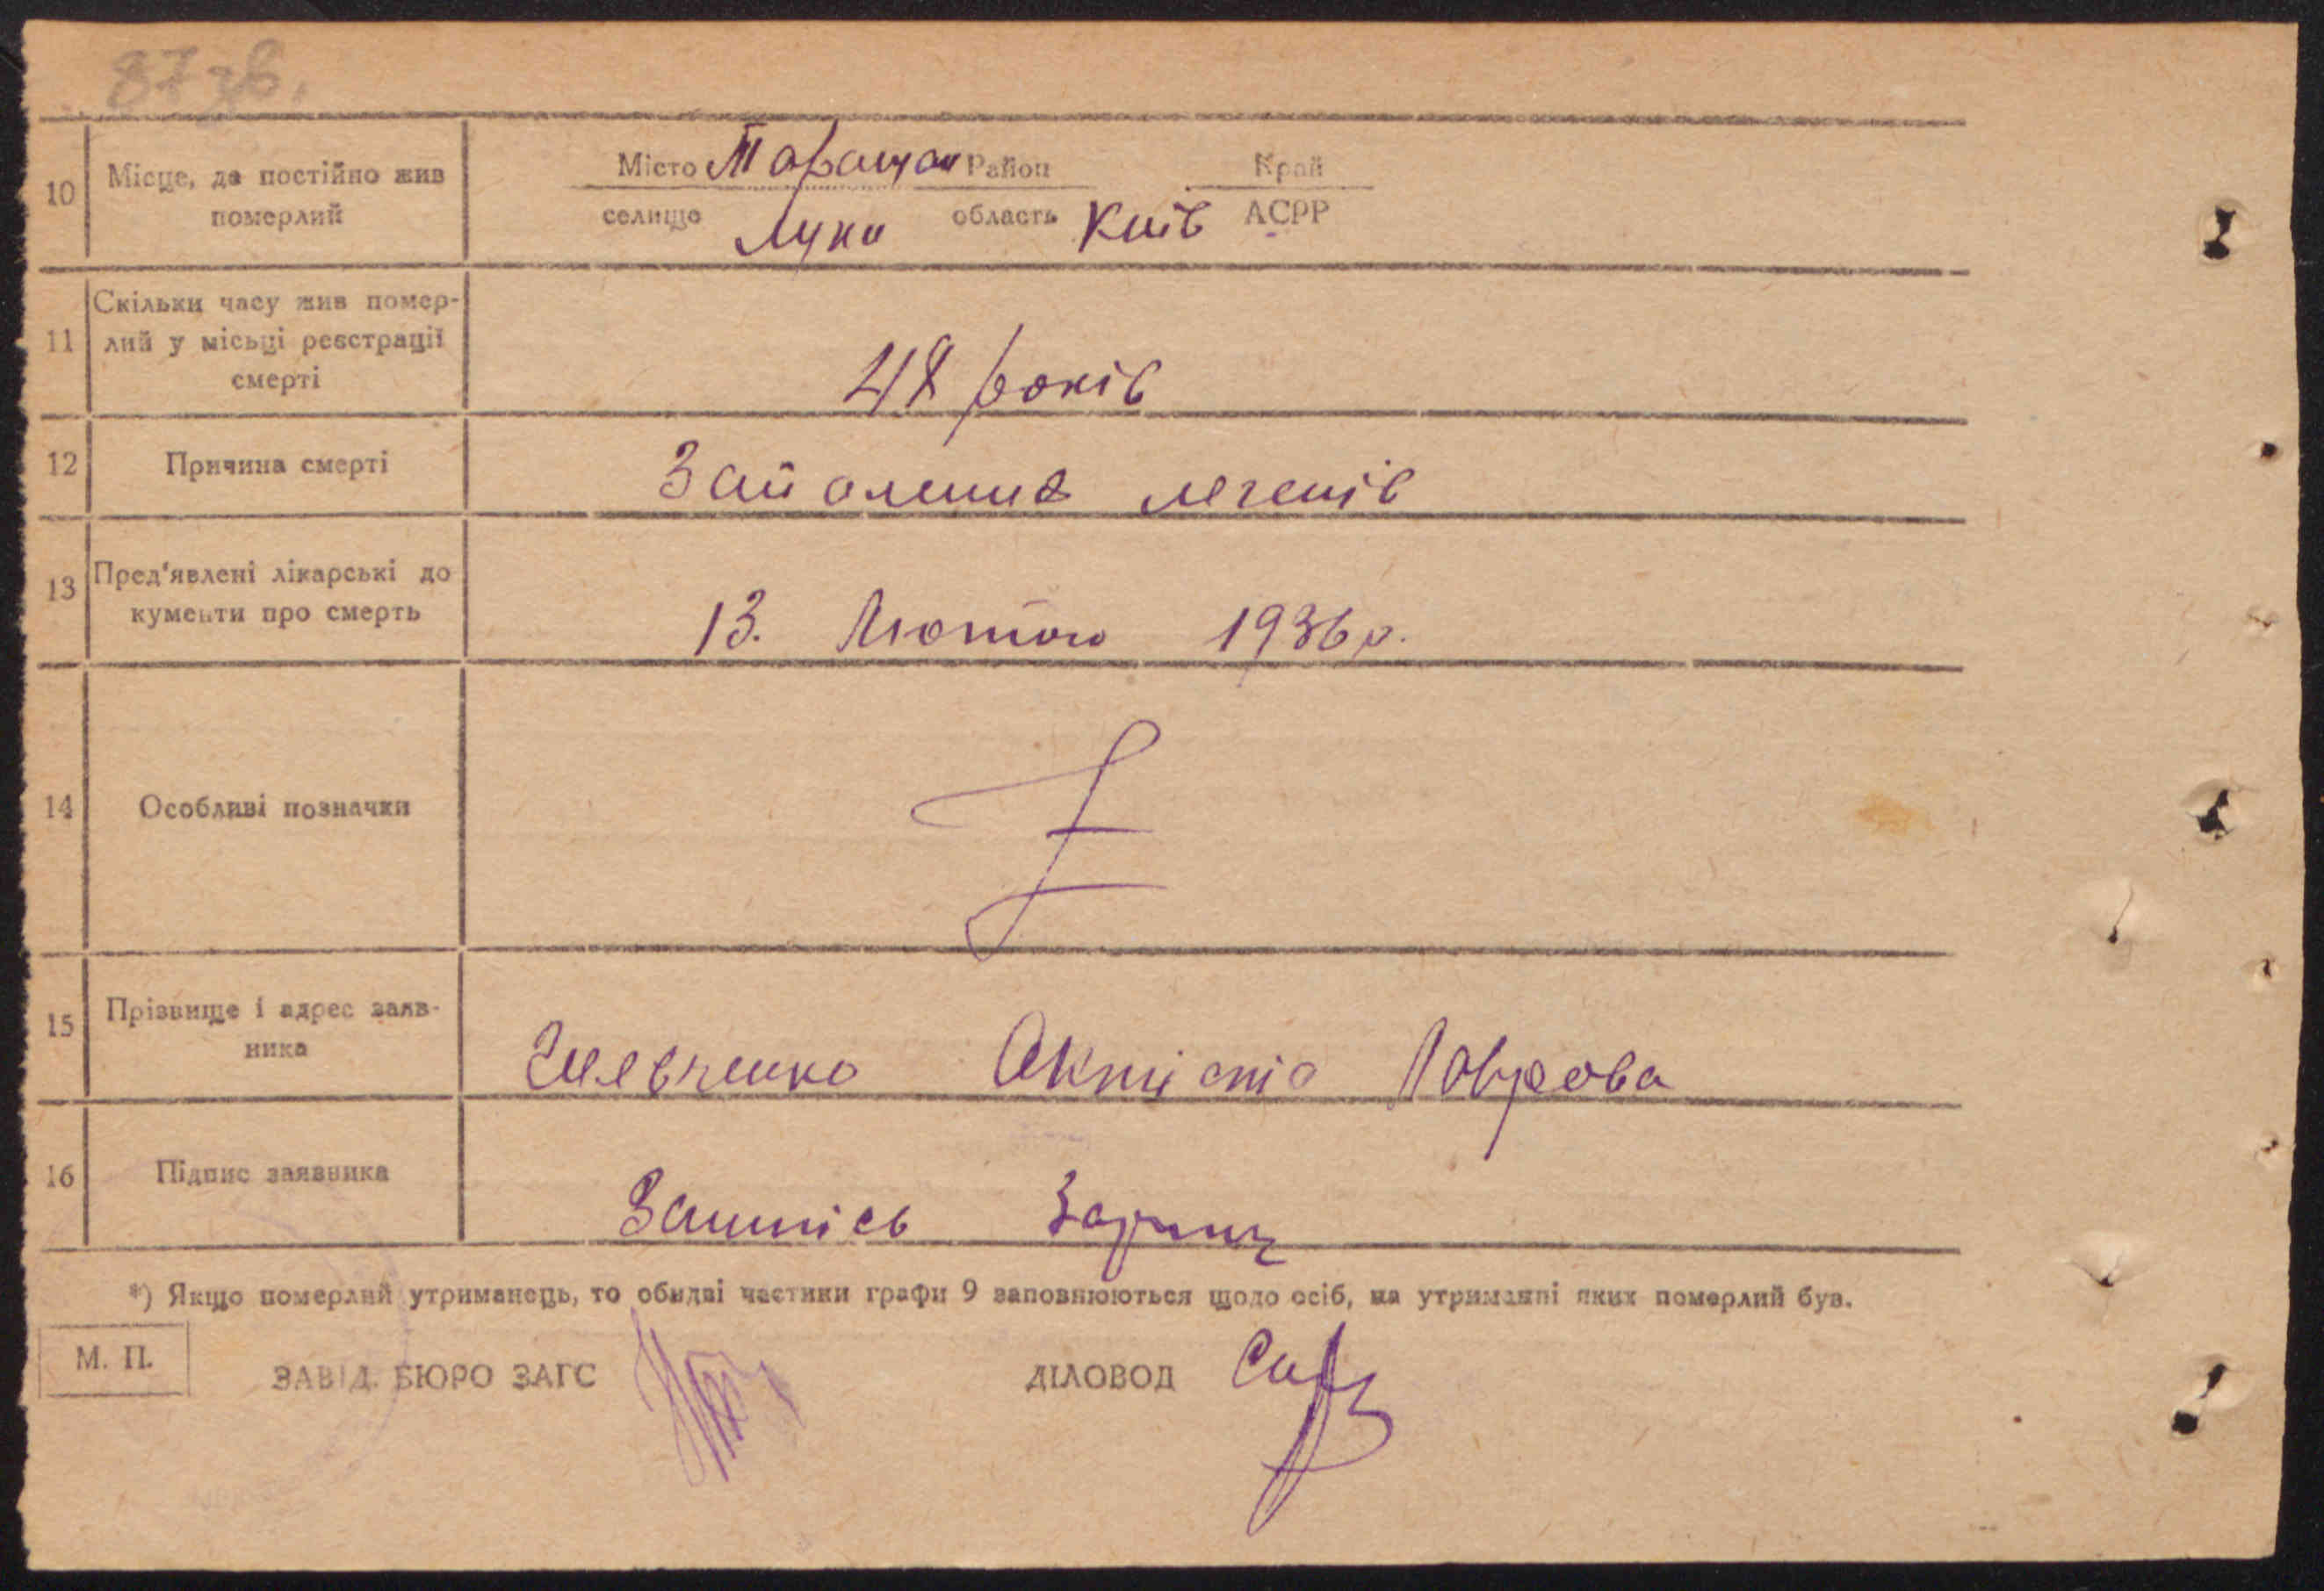 87 зв.
10 Місце, де постійно жив
померлий
Місто Таращан Район Край
селище Лука область Київ АСРР
11 Скільки часу жив помер-
лий у місьці реєстрації
смерті
48 років
12 Причина смерті
Запаленнє легенів
13 Пред'явлені лікарські до
кументи про смерть
13. Лютого 1936 р.
14 Особливі позначки
15 Прізвище і адрес заяв-
ника
Шевченко
16 Підпис заявника
*) Якщо померлий утриманець, то обидві частини графи 9 заповнюються щодо осіб, на утриманні яких померлий був.
М. П.
ЗАВІД. БЮРО ЗАГС ДІЛОВОД